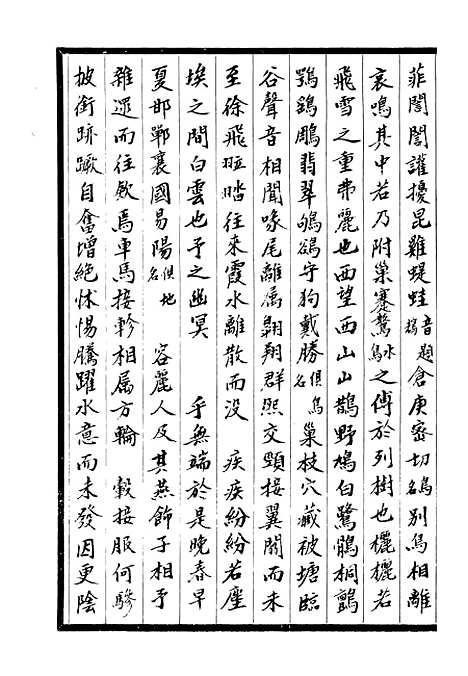 菲誾誾讙擾昆雞蝭蛙音題倉庚密切鳥名別鳥相離
哀鳴其中若乃附巢蹇鷔水鳥之傅於列樹也欐欐若
飛雪之重弗麗也西望西山山鵲野鳩白鷺鶻桐鸇
鶚鷂鵰翡翠鴝鵒守狗戴勝俱鳥名巢枝穴藏被塘臨
谷聲音相聞喙尾離属翱翔群熙交頸接翼闒而未
至徐飛踏往來霞水離散而没 疾疾紛紛若塵
埃之間白雲也予之幽冥 乎無端於是晚春早
夏邯鄲襄國易陽俱地名 容麗人及其燕飾子相予
雜遝而往欵焉車馬接軫相属方輪 轂接服何驂
披銜跡蹶自奮增絕怵惕騰躍水意而未發因更陰